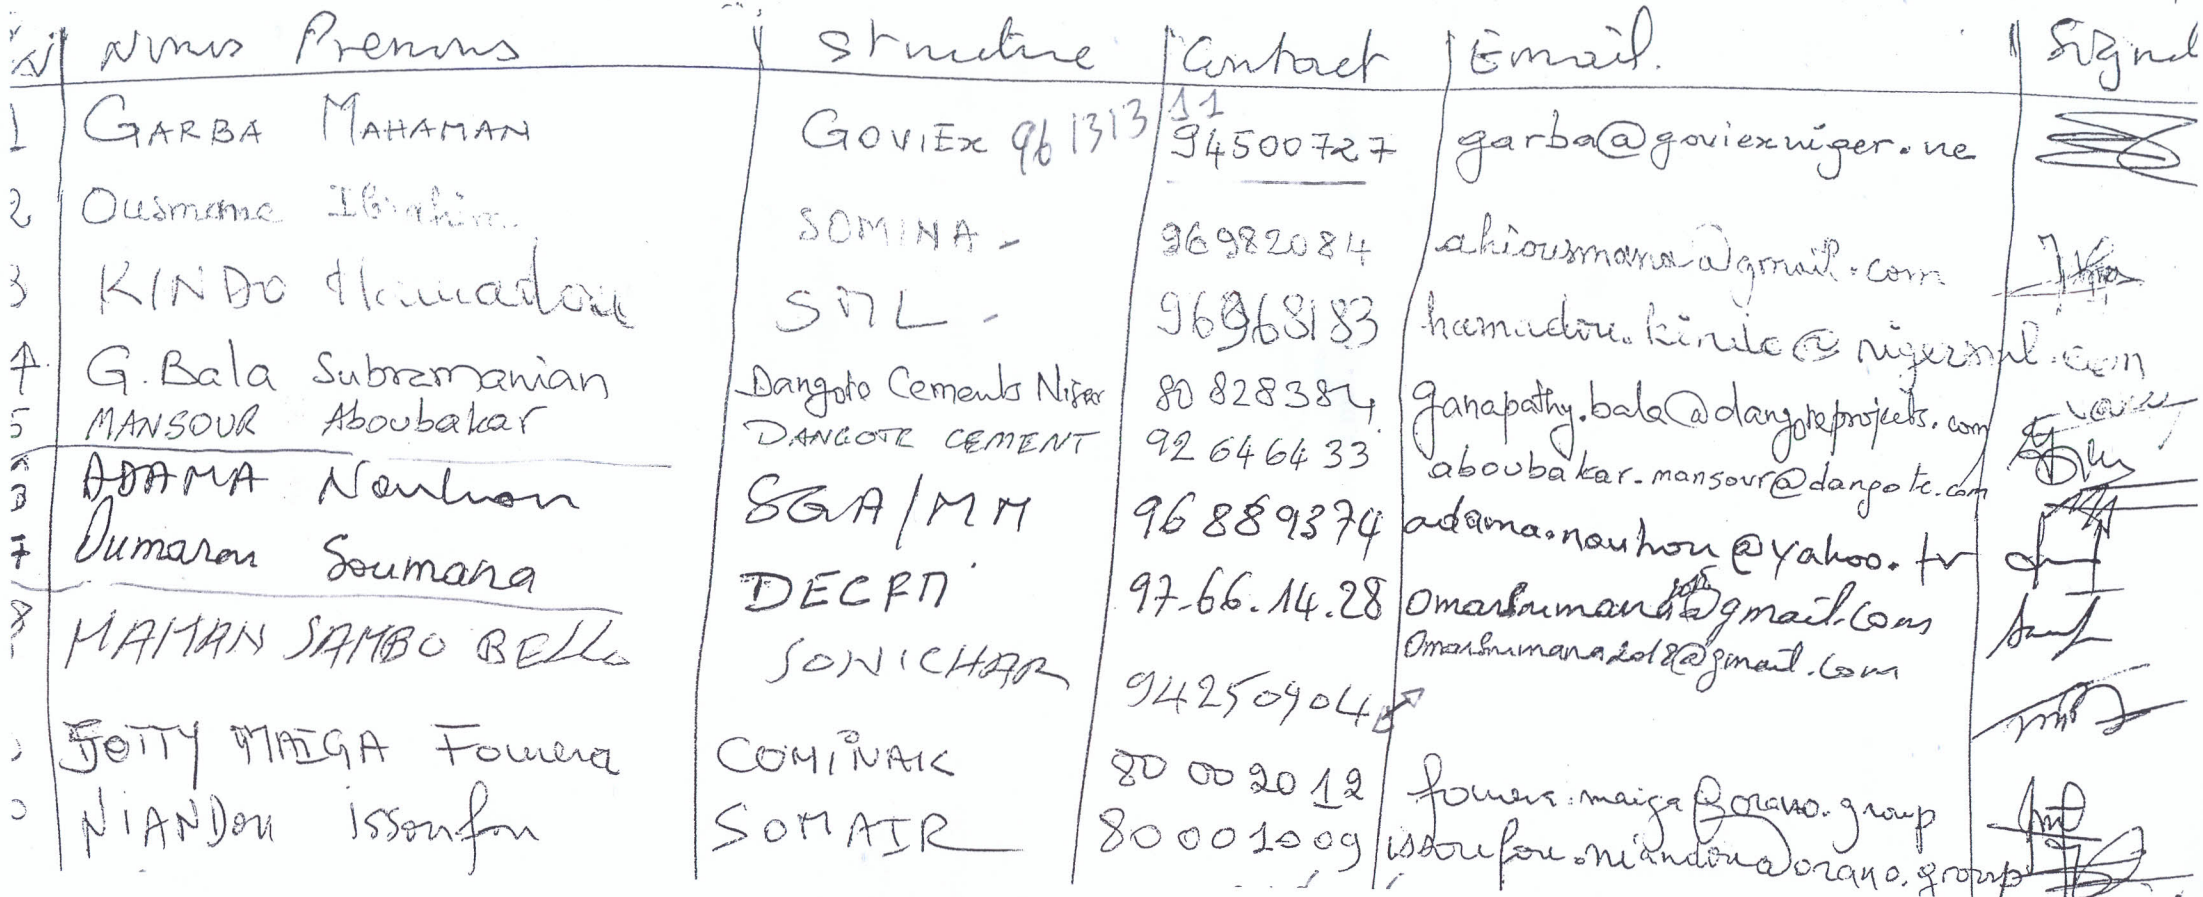 N Noms Prenoms Structure Contact Email. Sign
1 GARBA MAHAMAN GOVIEx 96 1313 11 94500727 garba@goviexniger.ne
2 Ousmane Ibrahim SOMINA - 96982084 ahiousmana@gmail.com
3 KINDO Hamadou SML - 96968183 hamadou.kindo@nigersml.com
4. G. Bala Subramanian Dangote Cements Niger 80 828384 ganapathy.bala@dangoteprojects.com
5 MANSOUR Aboubakar DANGOTE CEMENT 92 646433 aboubakar.mansour@dangote.com
ADAMA Nouhou SGA/MM 96 889374 adama.nouhou@yahoo.fr
7 Oumarou Soumana DECPM 97.66.14.28 @gmail.com
Omarsumana2018@gmail.com
8 MAMAN SAMBO BELLO SONICHAR 94250904
JOTTY MAIGA Fourera COMINAK 80 00 20 12 fourera.maiga@orano.group
NIANDOU Issoufou SOMAIR 80001009 issoufou.niandou@orano.group